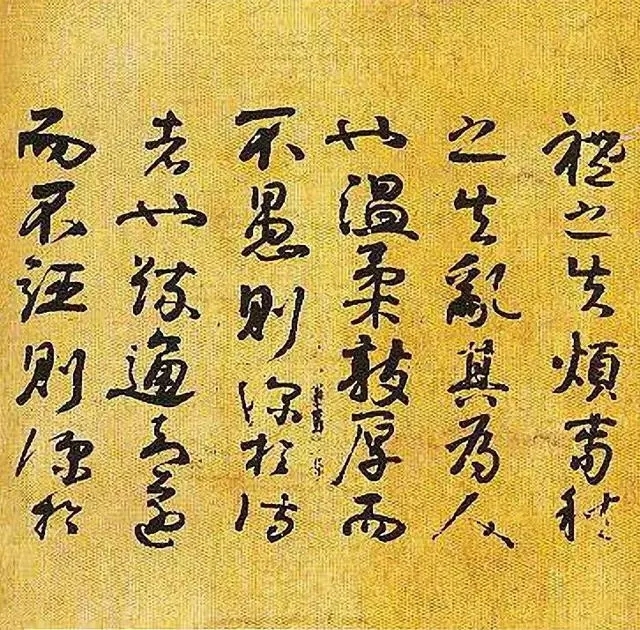 禮之失煩春秋
之失亂其為人
也温柔敦厚而
不愚則深於詩
者也疏通知遠
而不誣則深於